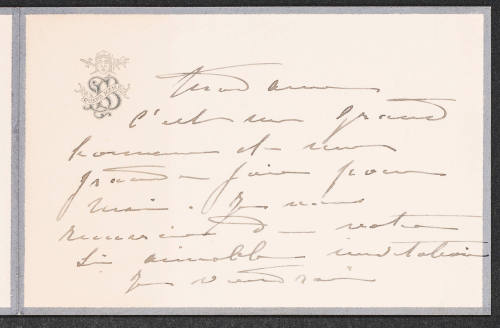 Madame
c'est un grand
honneur et une
grande joie pour
moi. Je vous
remercie de votre
si aimable invitation
Je viendrai